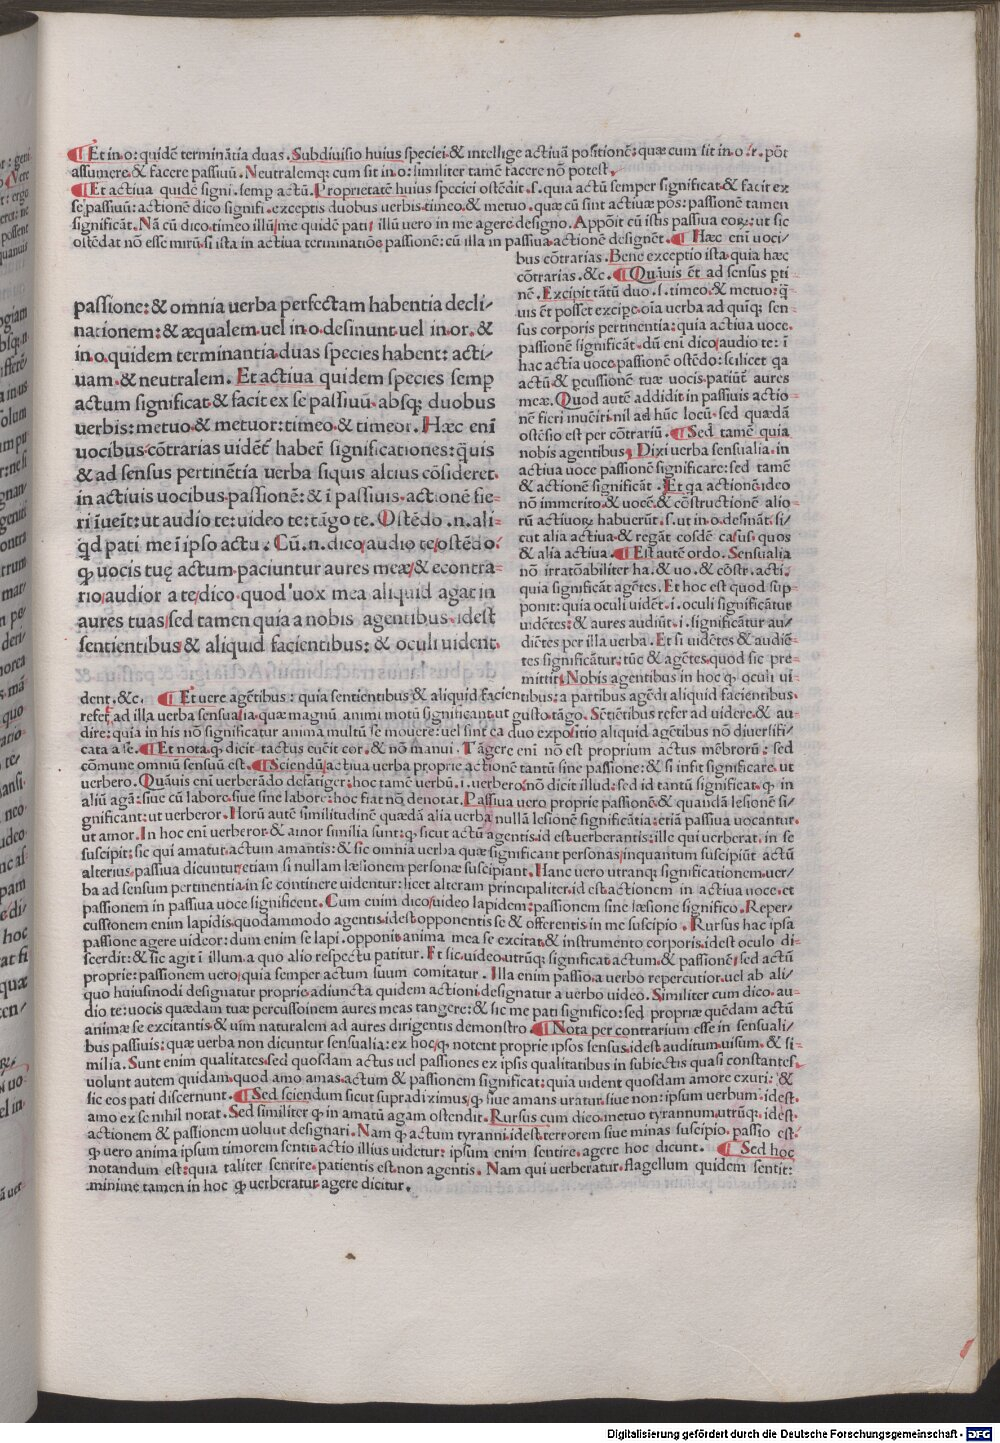 ¶Et in.o: quidē terminātia duas. Subdiuisio huius speciei & intellige actiuā positionē: quæ cum sit in o.r. pōt
assumere & facere passiuū. Neutralemq; cum sit in o: similiter tamē facere nō potest.
¶Et actiua quidē signi. semp actū. Proprietatē huius speciei ostēdit .s. quia actū semper significat & facit ex
se passiuū: actionē dico signifi. exceptis duobus uerbis timeo & metuo. quæ cū sint actiuæ pos: passionē tamen
significāt. Nā cū dico timeo illū/me quidē pati/ illū uero in me agere designo. Appōit cū istis passiua eoꝝ: ut sic
ostēdat nō esse mirū si ista in actiua terminatiōe passionē: cū illa in passiua actionē designēt. ¶Hæc eni uoci/
bus cōtrarias. Bene exceptio ista quia hæc
cōtrarias. &c. ¶Quāuis ēt ad sensus pti
nē. Excipit tātū duo .s. timeo & metuo: q̄
uis ēt posset excipe oīa uerba ad quīq; sen-
sus corporis pertinentia: quia actiua uoce
passionē significāt. dū eni dico/audio te: ī
hac actīa uoce passionē ostēdo: scilicet qa
actū & pcussionē tuæ uocis patiūt̄ aures
meæ. Quod autē addidit in passiuis actio-
nē fieri inuēiri nil ad hūc locū/ sed quædā
ostēsio est per cōtrariū. ¶Sed tamē quia
nobis agentibus. Dixi uerba sensualia in
actiua uoce passionē significare: sed tamē
& actionē significāt. Et qa actionē ideo
nō immerito & uocē & cōstructionē alio-
rū actiuoꝝ habuerūt .s. ut in o. desināt: si/
cut alia actiua & regāt eosdē casus quos
& alia actiua. ¶Est autē ordo. Sensualia
nō irratōabiliter ha. & uo. & cōstr. acti.
quia significāt agētes. Et hoc est quod sup
ponit: quia oculi uidēt .i. oculi significātur
uidētes: & aures audiūt .i. significātur au/
diētes per illa uerba. Et si uidētes & audiē-
tes significātur: tūc & agētes quod sic pre-
mittit. Nobis agentibus in hoc q̄ oculi ui-
passione: & omnia uerba perfectam habentia decli/
nationem: & æqualem uel in o desinunt uel in or. &
in o quidem terminantia duas species habent: acti/
uam & neutralem. Et actiua quidem species semp
actum significat & facit ex se passiuū absq; duobus
uerbis: metuo & metuor: timeo & timeor. Hæc eni
uocibus cōtrarias uidēt̄ haber̄ significationes: q̄uis
& ad sensus pertinētia uerba siquis altius cōsideret
in actiuis uocibus passionē: & ī passiuis actionē fie-
ri īueīt: ut audio te: uideo te: tāgo te. Ostēdo .n. ali-
qd pati me ī ipso actu. Cū .n. dico/audio te/ostēdo.
q̄ uocis tuę actum paciuntur aures meæ/& econtra-
rio/audior a te/dico quod uox mea aliquid agat in
aures tuas/sed tamen quia a nobis agentibus idest
sentientibus & aliquid facientibus: & oculi uident
dent. &c. ¶Et uere agētibus: quia sentientibus & aliquid facientibus: a partibus agēdi aliquid facientibus
refer̄ ad illa uerba sensualia quæ magnū animi motū significant ut gusto tāgo. Sētiētibus refer ad uidere & au-
dire: quia in his nō significatur anima multū se mouere: uel sint ea duo expositio aliquid agētibus nō diuersifi-
cata a se. ¶Et nota q̄ dicit tactus euēit cor & nō manui. Tāgere eni nō est proprium actus mēbrorū: sed
cōmune omniū sensuū est. ¶Sciendū/actiua uerba proprie actionē tantū sine passione: & si infit significare ut
uerbero. Quāuis eni uerberādo defatiger: hoc tamē uerbū .i. uerbero/nō dicit illud: sed id tantū significat q̄ in
aliū agā: siue cū labore siue sine labore: hoc fiat nō denotat. Passiua uero proprie passionē & quandā lesionē si/
gnificant: ut uerberor. Horū autē similitudinē quædā alia uerba nullā lesionē significātia: etiā passiua uocantur
ut amor. In hoc eni uerberor & amor similia sunt: q̄ sicut actū agentis id est uerberantis: ille qui uerberat in se
suscipit: sic qui amatur actum amantis: & sic omnia uerba quæ significant personas/inquantum suscipiūt actū
alterius passiua dicuntur etiam si nullam læsionem personæ suscipiant. Hanc uero utranq; significationem uer/
ba ad sensum pertinentia in se continere uidentur: licet alteram principaliter id est actionem in actiua uoce. et
passionem in passiua uoce significent. Cum enim dico/uideo lapidem: passionem sine læsione significo. Reper-
cussionem enim lapidis quodammodo agentis idest opponentis se & offerentis in me suscipio. Rursus hac ipsa
passione agere uideor: dum enim se lapi. opponit anima mea se excitat & instrumento corporis idest oculo di-
scerdit: & sic agit ī illum a quo alio respectu patitur. Et sic uideo utrūq; significat actum & passionē/ sed actū
proprie: passionem uero/quia semper actum suum comitatur. Illa enim passio a uerbo repercutior uel ab ali/
quo huiusmodi designatur proprie adiuncta quidem actioni designatur a uerbo uideo. Similiter cum dico. au-
dio te: uocis quædam tuæ percussoinem aures meas tangere: & sic me pati significo: sed propriæ quēdam actū
animæ se excitantis & uim naturalem ad aures dirigentis demonstro. ¶Nota per contrarium esse in sensuali/
bus passiuis: quæ uerba non dicuntur sensualia: ex hoc/q̄ notent proprie ipsos sensus idest auditum uisum. & si-
milia. Sunt enim qualitates sed quosdam actus uel passiones ex ipsis qualitatibus in subiectis quasi constantes
uolunt autem quidam quod amo amas actum & passionem significat: quia uident quosdam amore exuri: &
sic eos pati discernunt. ¶Sed sciendum sicut supradiximus/q̄ siue amans uratur siue non: ipsum uerbum idest
amo ex se nihil notat. Sed similiter q̄ in amatū agam ostendit. Rursus cum dico metuo tyrannum utrūq; idest
actionem & passionem uoluut designari. Nam q̄ actum tyranni idest terrorem siue minas suscipio passio est:
q̄ uero anima ipsum timorem sentit actio illius uidetur: ipsum enim sentire agere hoc dicunt. ¶Sed hoc
notandum est: quia taliter sentire patientis est non agentis. Nam qui uerberatur flagellum quidem sentit:
minime tamen in hoc q̄ uerberatur agere dicitur.
Digitalisierung gefördert durch die Deutsche Forschungsgemeinschaft - DFG